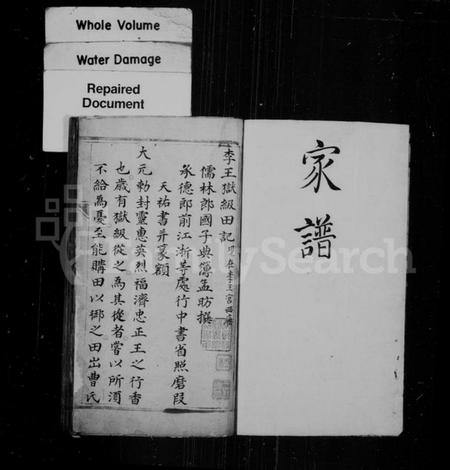 Whole Volume
Water Damage
Repaired
Document
家譜
李王獄級田記
儒林郎國子典簿孟昉撰
承德郎前江浙等處行中書省照磨段
天祐書并篆額
大元勅封靈惠英烈福濟忠正王之行香
也歲有獄級從之為其從者嘗以所湏
不給為憂至能購田以鄉之田出曹氏